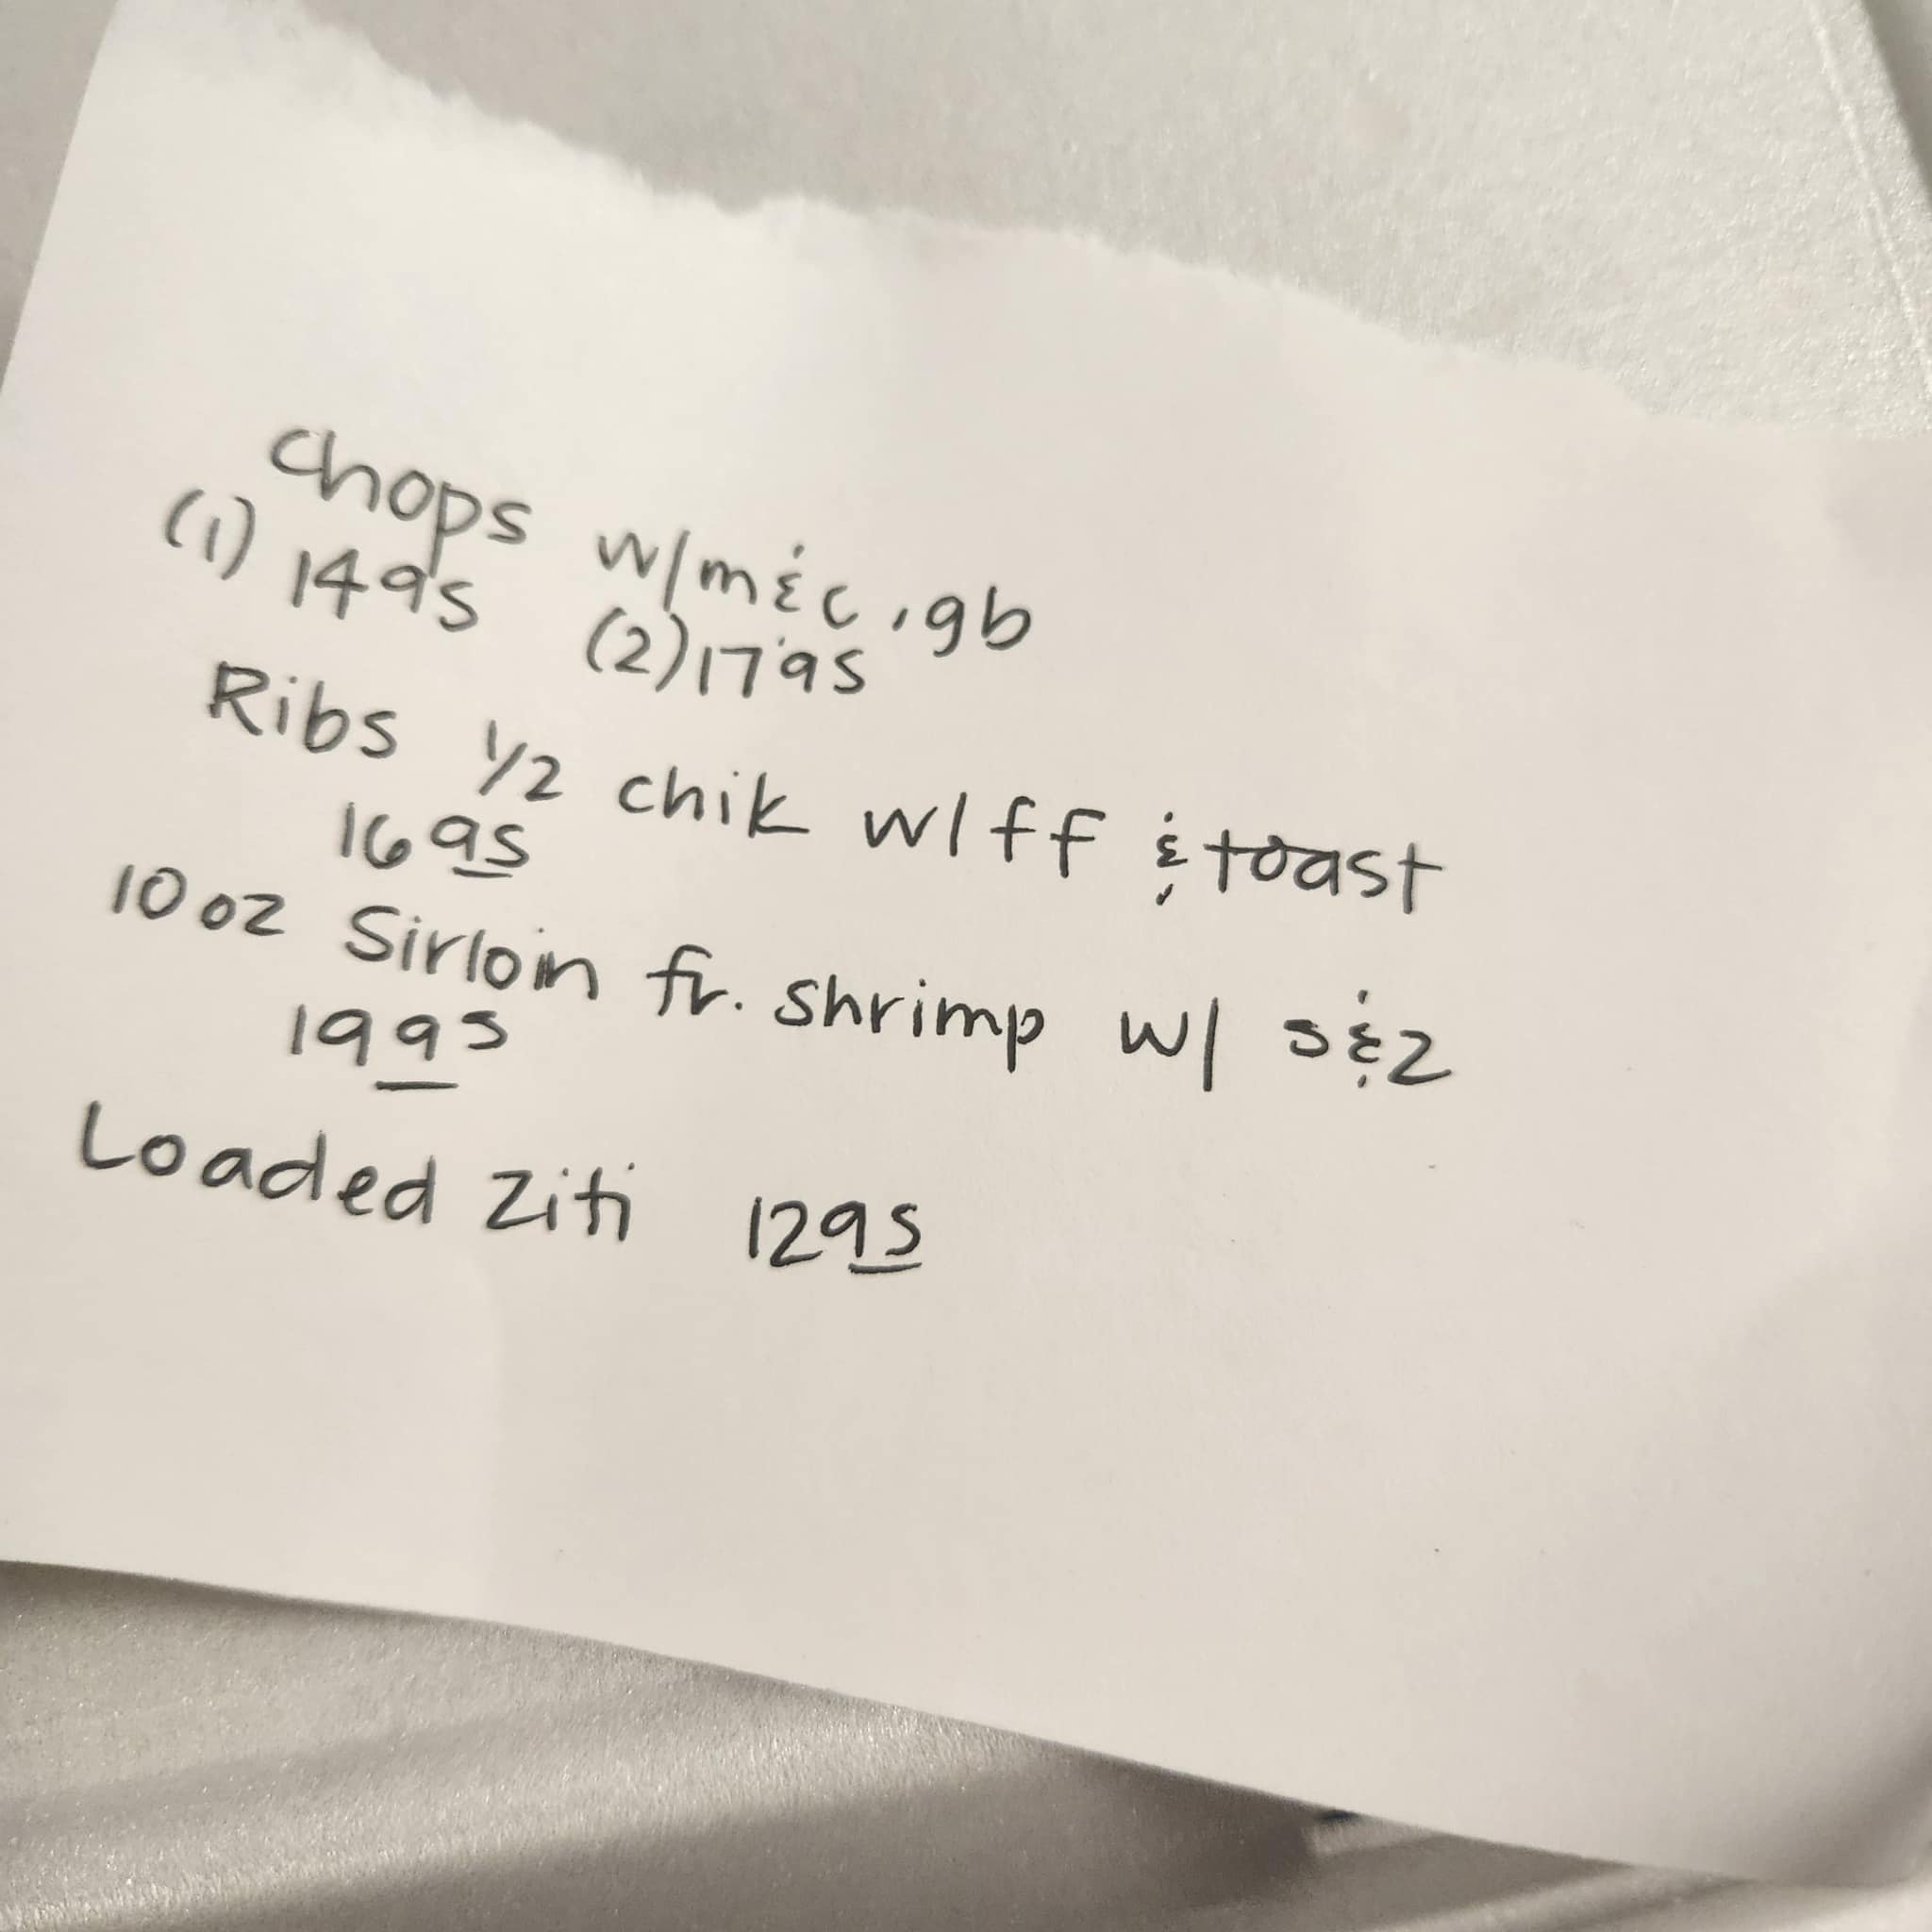 Chops w/m&c, gb
(1) 1495 (2) 1795
Ribs 1/2 chik w/ff & toast
1695
10 oz Sirloin fr. shrimp w/ s&z
1995
Loaded Ziti 1295